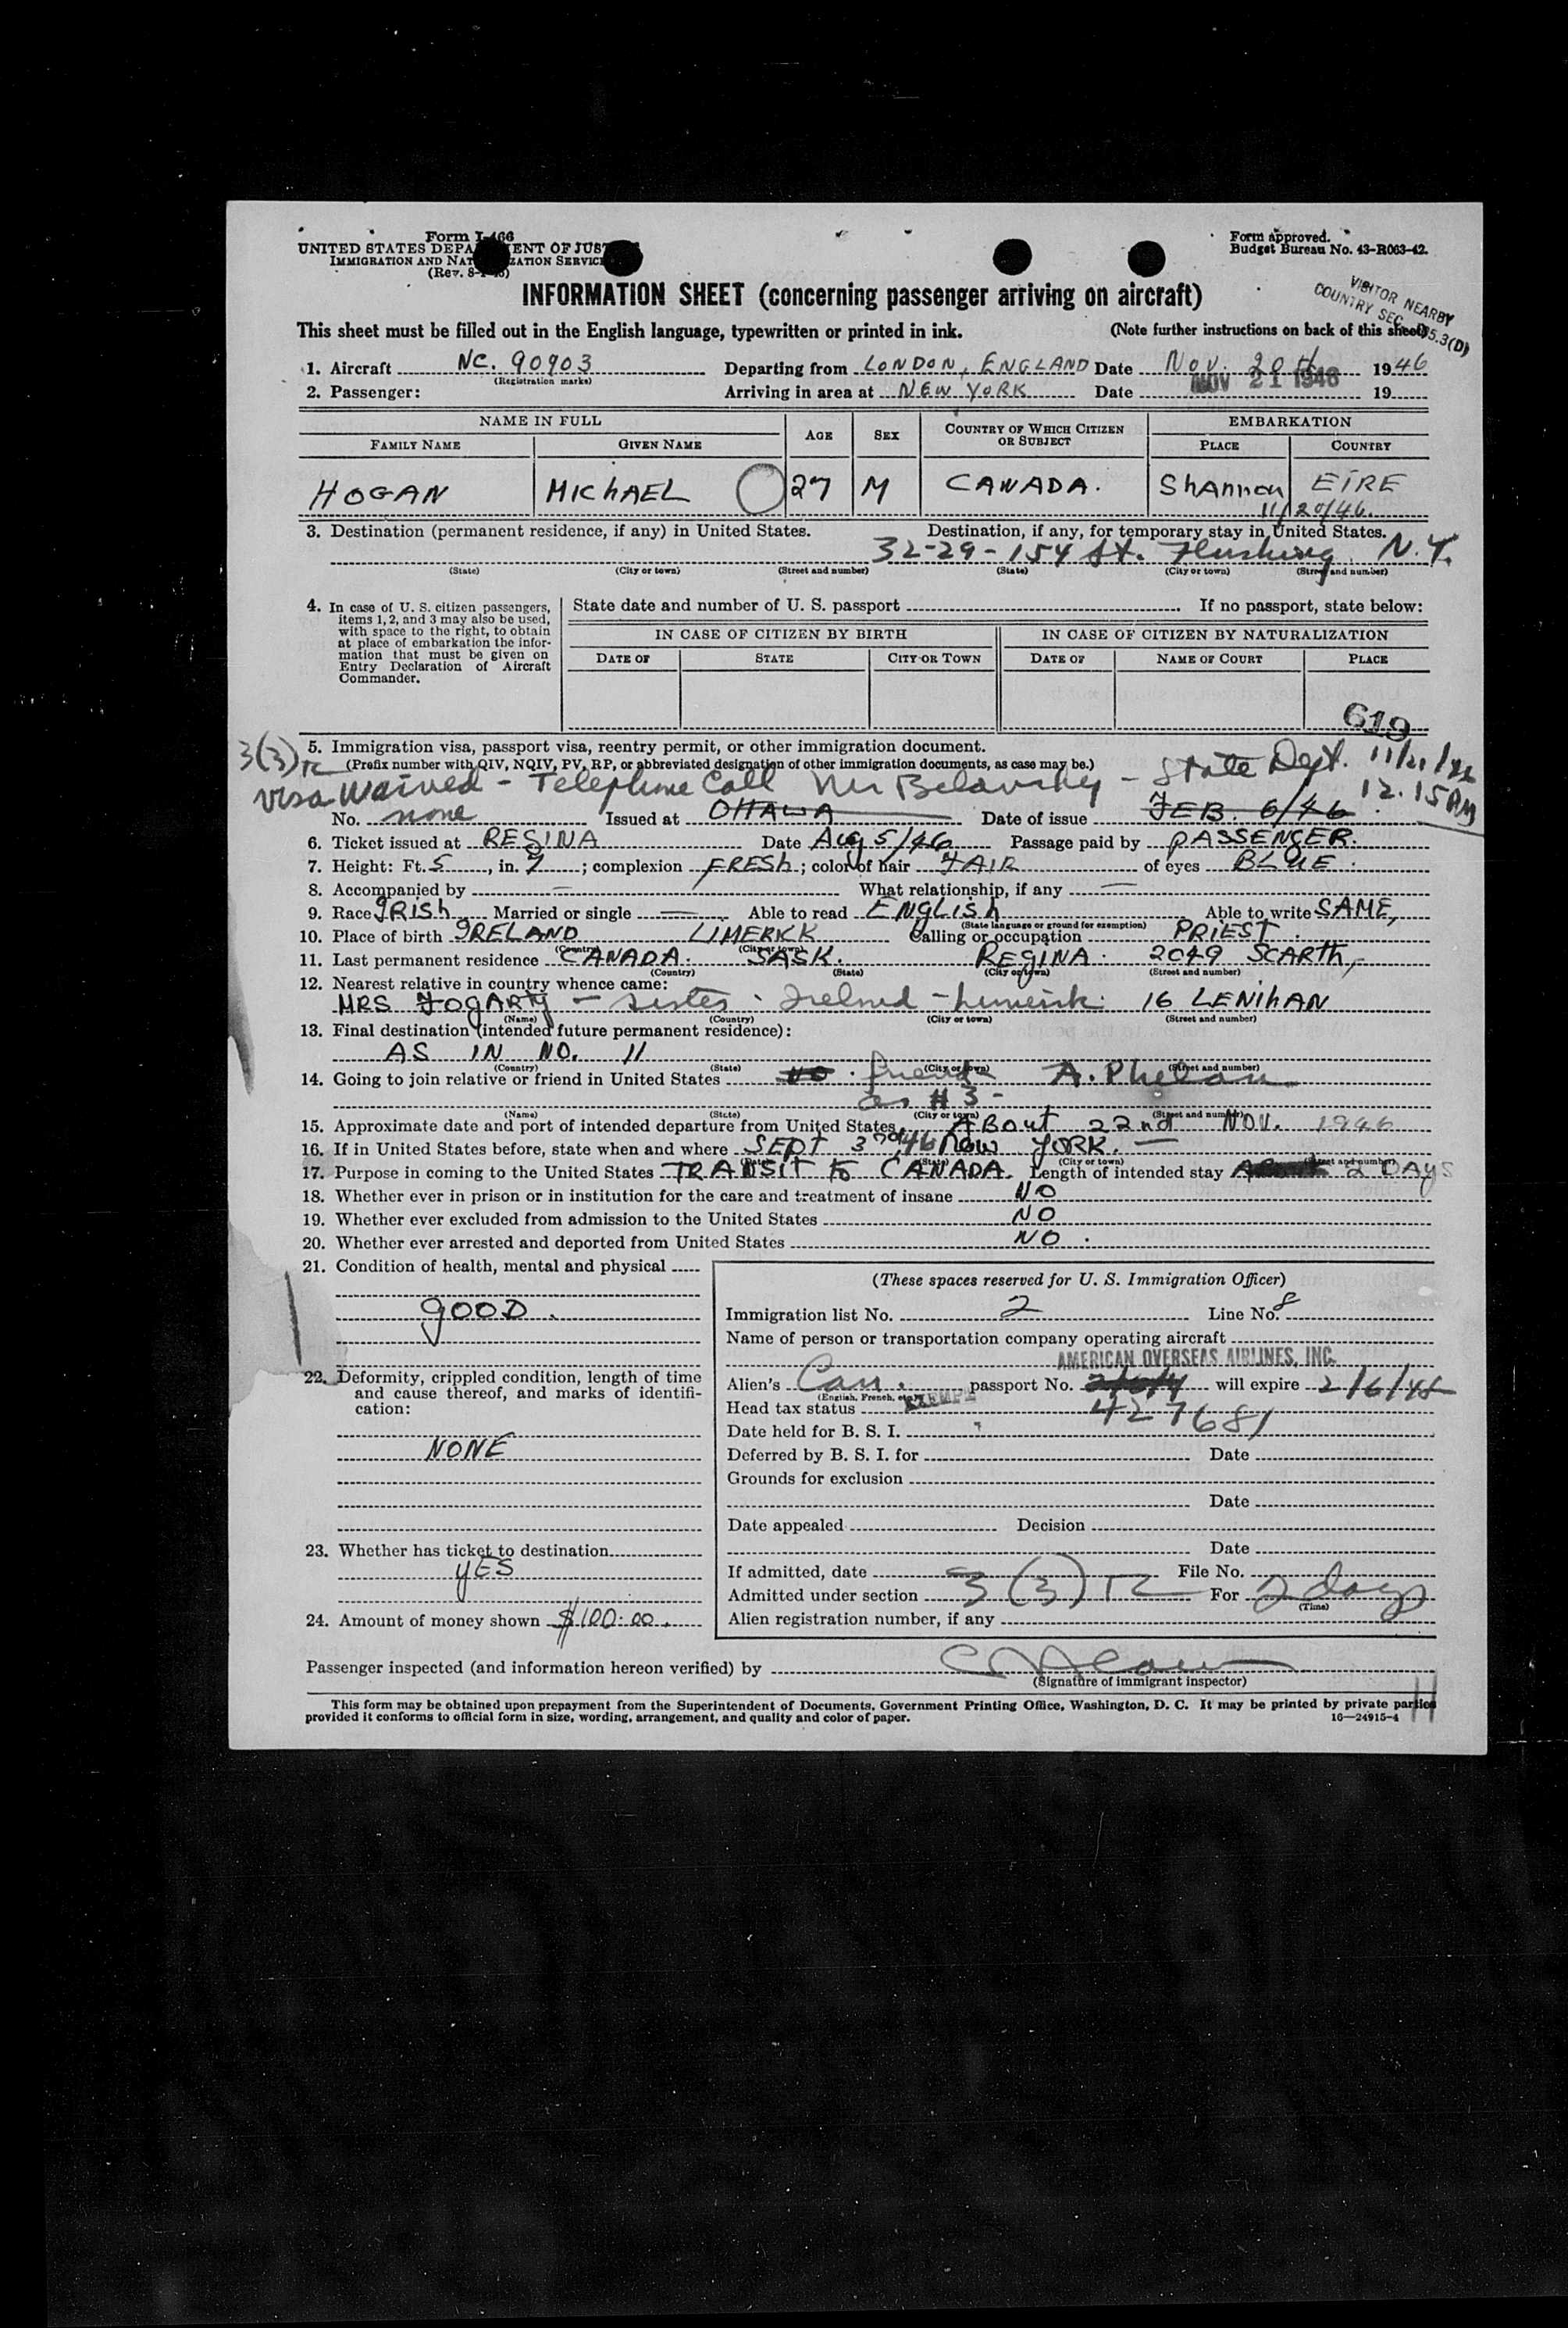 Form I-466
UNITED STATES DEPARTMENT OF JUSTICE
IMMIGRATION AND NATURALIZATION SERVICE
(Rev. 8-1-45)
Form approved.
Budget Bureau No. 43-R063-42.
INFORMATION SHEET (concerning passenger arriving on aircraft)
VISITOR NEARBY
COUNTRY SEC. 175.3(D)
This sheet must be filled out in the English language, typewritten or printed in ink. (Note further instructions on back of this sheet)
1. Aircraft NC. 90903 Departing from LONDON, ENGLAND Date NOV. 20th 1946
(Registration marks)
2. Passenger: Arriving in area at NEW YORK Date NOV 21 1946 19
NAME IN FULL AGE SEX COUNTRY OF WHICH CITIZEN OR SUBJECT EMBARKATION
FAMILY NAME GIVEN NAME PLACE COUNTRY
HOGAN MICHAEL 27 M CANADA. Shannon EIRE
11/20/46.
3. Destination (permanent residence, if any) in United States. Destination, if any, for temporary stay in United States.
32-29-154 St. Flushing N.Y.
(State) (City or town) (Street and number) (State) (City or town) (Street and number)
4. In case of U. S. citizen passengers, items 1, 2, and 3 may also be used, with space to the right, to obtain at place of embarkation the information that must be given on Entry Declaration of Aircraft Commander.
State date and number of U. S. passport If no passport, state below:
IN CASE OF CITIZEN BY BIRTH IN CASE OF CITIZEN BY NATURALIZATION
DATE OF STATE CITY OR TOWN DATE OF NAME OF COURT PLACE
619
3(3)TC 5. Immigration visa, passport visa, reentry permit, or other immigration document.
(Prefix number with QIV, NQIV, PV, RP, or abbreviated designation of other immigration documents, as case may be.)
Visa Waived - Telephone Call Mr - State Dept. 11/21/46
12.15 AM
No. none Issued at OTTAWA Date of issue FEB. 6/46
6. Ticket issued at REGINA Date Aug 5/46 Passage paid by PASSENGER.
7. Height: Ft. 5, in. 7; complexion FRESH; color of hair FAIR of eyes BLUE.
8. Accompanied by — What relationship, if any —
9. Race IRISH Married or single — Able to read ENGLISH Able to write SAME,
(State language or ground for exemption)
10. Place of birth IRELAND LIMERICK Calling or occupation PRIEST.
(Country) (City or town)
11. Last permanent residence CANADA. SASK. REGINA. 2049 SCARTH,
(Country) (State) (City or town) (Street and number)
12. Nearest relative in country whence came:
MRS FOGARTY - sister. Ireland - Limerick. 16 LENIHAN
(Name) (Country) (City or town) (Street and number)
13. Final destination (intended future permanent residence):
AS IN NO. 11
(Country) (State) (City or town) (Street and number)
14. Going to join relative or friend in United States NO. friend A. Phelan
as #3 -
(Name) (State) (City or town) (Street and number)
15. Approximate date and port of intended departure from United States ABOUT 22nd NOV. 1946
16. If in United States before, state when and where SEPT 3rd/46 New YORK. —
(Date) (State) (City or town) (Street and number)
17. Purpose in coming to the United States TRANSIT to CANADA. Length of intended stay 2 DAYS
18. Whether ever in prison or in institution for the care and treatment of insane NO
19. Whether ever excluded from admission to the United States NO
20. Whether ever arrested and deported from United States NO.
21. Condition of health, mental and physical
GOOD.
22. Deformity, crippled condition, length of time and cause thereof, and marks of identification:
NONE
23. Whether has ticket to destination
YES
24. Amount of money shown $100.00.
(These spaces reserved for U. S. Immigration Officer)
Immigration list No. 2 Line No. 8
Name of person or transportation company operating aircraft
AMERICAN OVERSEAS AIRLINES, INC.
Alien's Can. passport No. 2/6/4 will expire 2/6/48
(English, French, etc.)
Head tax status EXEMPT 427681
Date held for B. S. I.
Deferred by B. S. I. for Date
Grounds for exclusion
Date
Date appealed Decision
Date
If admitted, date File No.
Admitted under section 3(3) TC For 2 days
(Time)
Alien registration number, if any
Passenger inspected (and information hereon verified) by
(Signature of immigrant inspector)
This form may be obtained upon prepayment from the Superintendent of Documents, Government Printing Office, Washington, D. C. It may be printed by private parties
provided it conforms to official form in size, wording, arrangement, and quality and color of paper. 16—24915-4